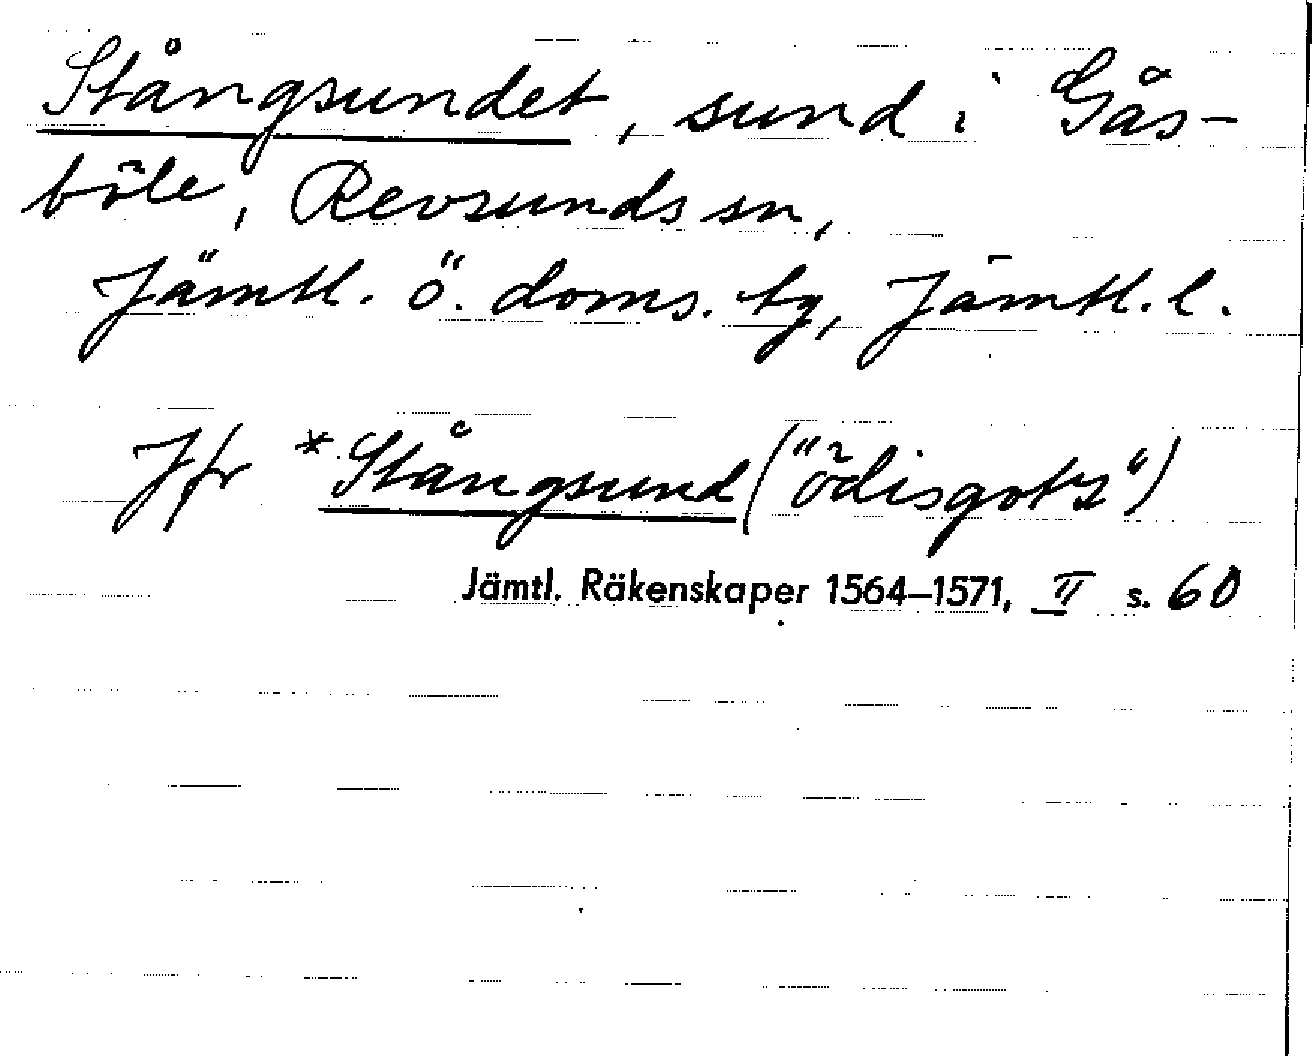 Stångsundet, sund i Gås-
böle, Revsunds sn,
Jämtl. ö. doms. tg, Jämtl. l.
Jfr *Stångsund ("ödisgotz")
Jämtl. Räkenskaper 1564–1571, II s. 60